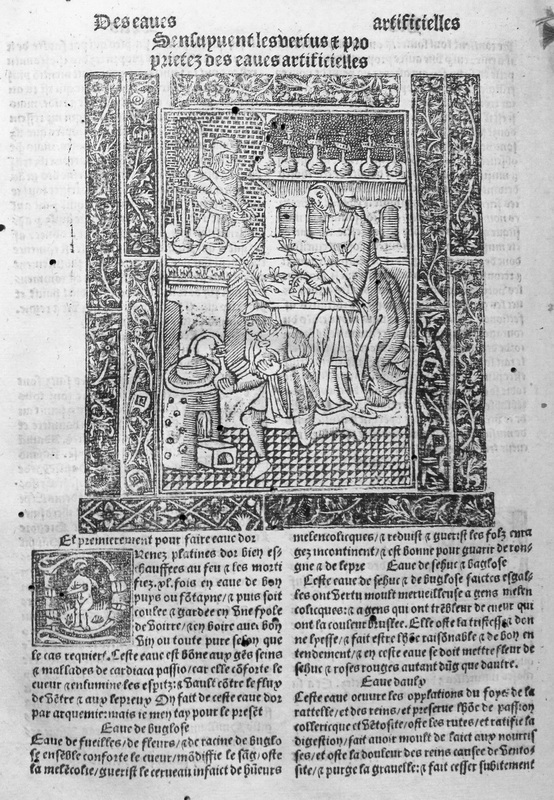 Des eaues artificielles
Sensuyuent les vertus & pro
prietez des eaues artificielles
Et premierement pour faire eaue dor
Prenez platines dor bien es-
chauffees au feu & les morti
fiez .pl. fois en eaue de bon
puys ou fōtayne/ & puis soit
coulee & gardee en vne fyole
de voirre/ & en boire auec bon
vin ou toute pure selon que
le cas requiert. Ceste eaue est bōne aux gēs seins
& mallades de cardiaca passio/ car elle cōforte le
cueur & enlumine les espitz: & vault cōtre le flux
de vētre & aux lepreux On fait de ceste eaue dor
par arquemie: mais ie men tay pour le presēt
Eaue de buglose
Eaue de fueilles/ de fleurs/ & de racine de buglo
se ensēble conforte le cueur/ mōdiffie le sāg/ oste
la melēcolie/ guerist le cerueau infaict de hūeurs
melencolicques/ & reduist & guerist les folz enra
gez incontinent/ & est bonne pour guarir de ron-
gne & de lepre Eaue de sehuc & baglose
Ceste eaue de sehuc & de buglose faictes esgal-
les ont vertu moult merueilleuse a gens melen
colicques: a gens qui ont trēbleur de cueur qui
ont la couleur Elle oste la tristesse/ don
ne lyesse/ & fait estre lhōe raisōnable & de bon en
tendement/ & en ceste eaue se doit mettre fleur de
sehuc & roses rouges autant dūg que dautre.
Eaue dauly
Ceste eaue oeuure les opplations du foye/ de la
rattelle/ et des reins/ et preserue lhōe de passion
collericque et vētosite/ oste les rutes/ et ratifia la
digestion/ fait auoir moult de laict aux nourris
ses/ et oste la douleur des reins causee de vento-
site/ & purge la grauelle: & fait cesser subitement